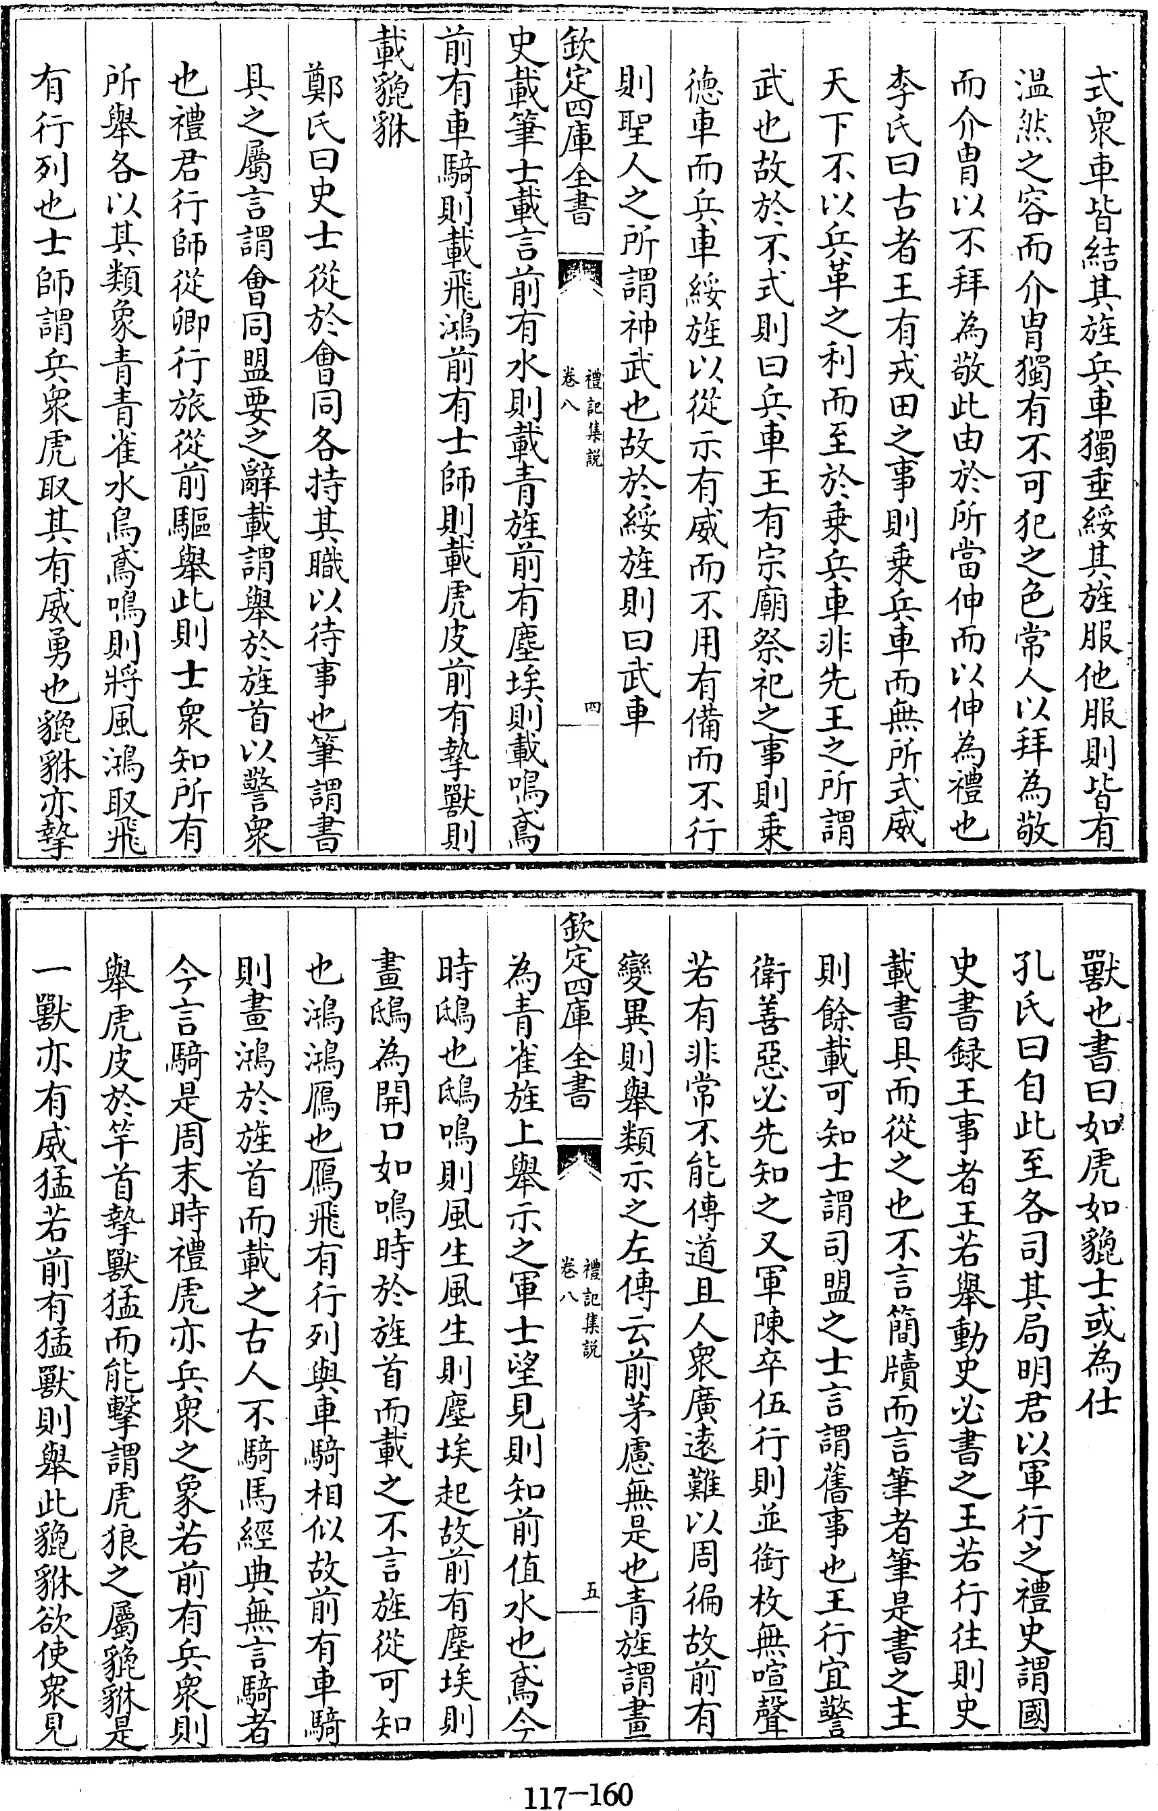 式衆車皆結其旌兵車獨垂綏其旌服他服則皆有
温然之容而介胄獨有不可犯之色常人以拜為敬
而介胄以不拜為敬此由於所當伸而以伸為禮也
李氏曰古者王有戎田之事則乗兵車而無所式威
天下不以兵革之利而至於乗兵車非先王之所謂
武也故於不式則曰兵車王有宗廟祭祀之事則乗
徳車而兵車綏旌以從示有威而不用有備而不行
則聖人之所謂神武也故於綏旌則曰武車
欽定四庫全書
禮記集説
卷八
四
史載筆士載言前有水則載青旌前有塵埃則載鳴鳶
前有車騎則載飛鴻前有士師則載虎皮前有摯獸則
載貔貅
鄭氏曰史士從於會同各持其職以待事也筆謂書
具之屬言謂會同盟要之辭載謂舉於旌首以警衆
也禮君行師從卿行旅從前驅舉此則士衆知所有
所舉各以其類象青青雀水鳥鳶鳴則將風鴻取飛
有行列也士師謂兵衆虎取其有威勇也貔貅亦摯
獸也書曰如虎如貔士或為仕
孔氏曰自此至各司其局明君以軍行之禮史謂國
史書録王事者王若舉動史必書之王若行往則史
載書具而從之也不言簡牘而言筆者筆是書之主
則餘載可知士謂司盟之士言謂舊事也王行宜警
衛善惡必先知之又軍陳卒伍行則並銜枚無喧聲
若有非常不能傳道且人衆廣逺難以周徧故前有
變異則舉類示之左傳云前茅慮無是也青旌謂畫
欽定四庫全書
禮記集説
卷八
五
為青雀旌上舉示之軍士望見則知前值水也鳶今
時鴟也鴟鳴則風生風生則塵埃起故前有塵埃則
畫鴟為開口如鳴時於旌首而載之不言旌從可知
也鴻鴻鴈也鴈飛有行列與車騎相似故前有車騎
則畫鴻於旌首而載之古人不騎馬經典無言騎者
今言騎是周末時禮虎亦兵衆之象若前有兵衆則
舉虎皮於竿首摯獸猛而能擊謂虎狼之屬貔貅是
一獸亦有威猛若前有猛獸則舉此貔貅欲使衆見
117-160